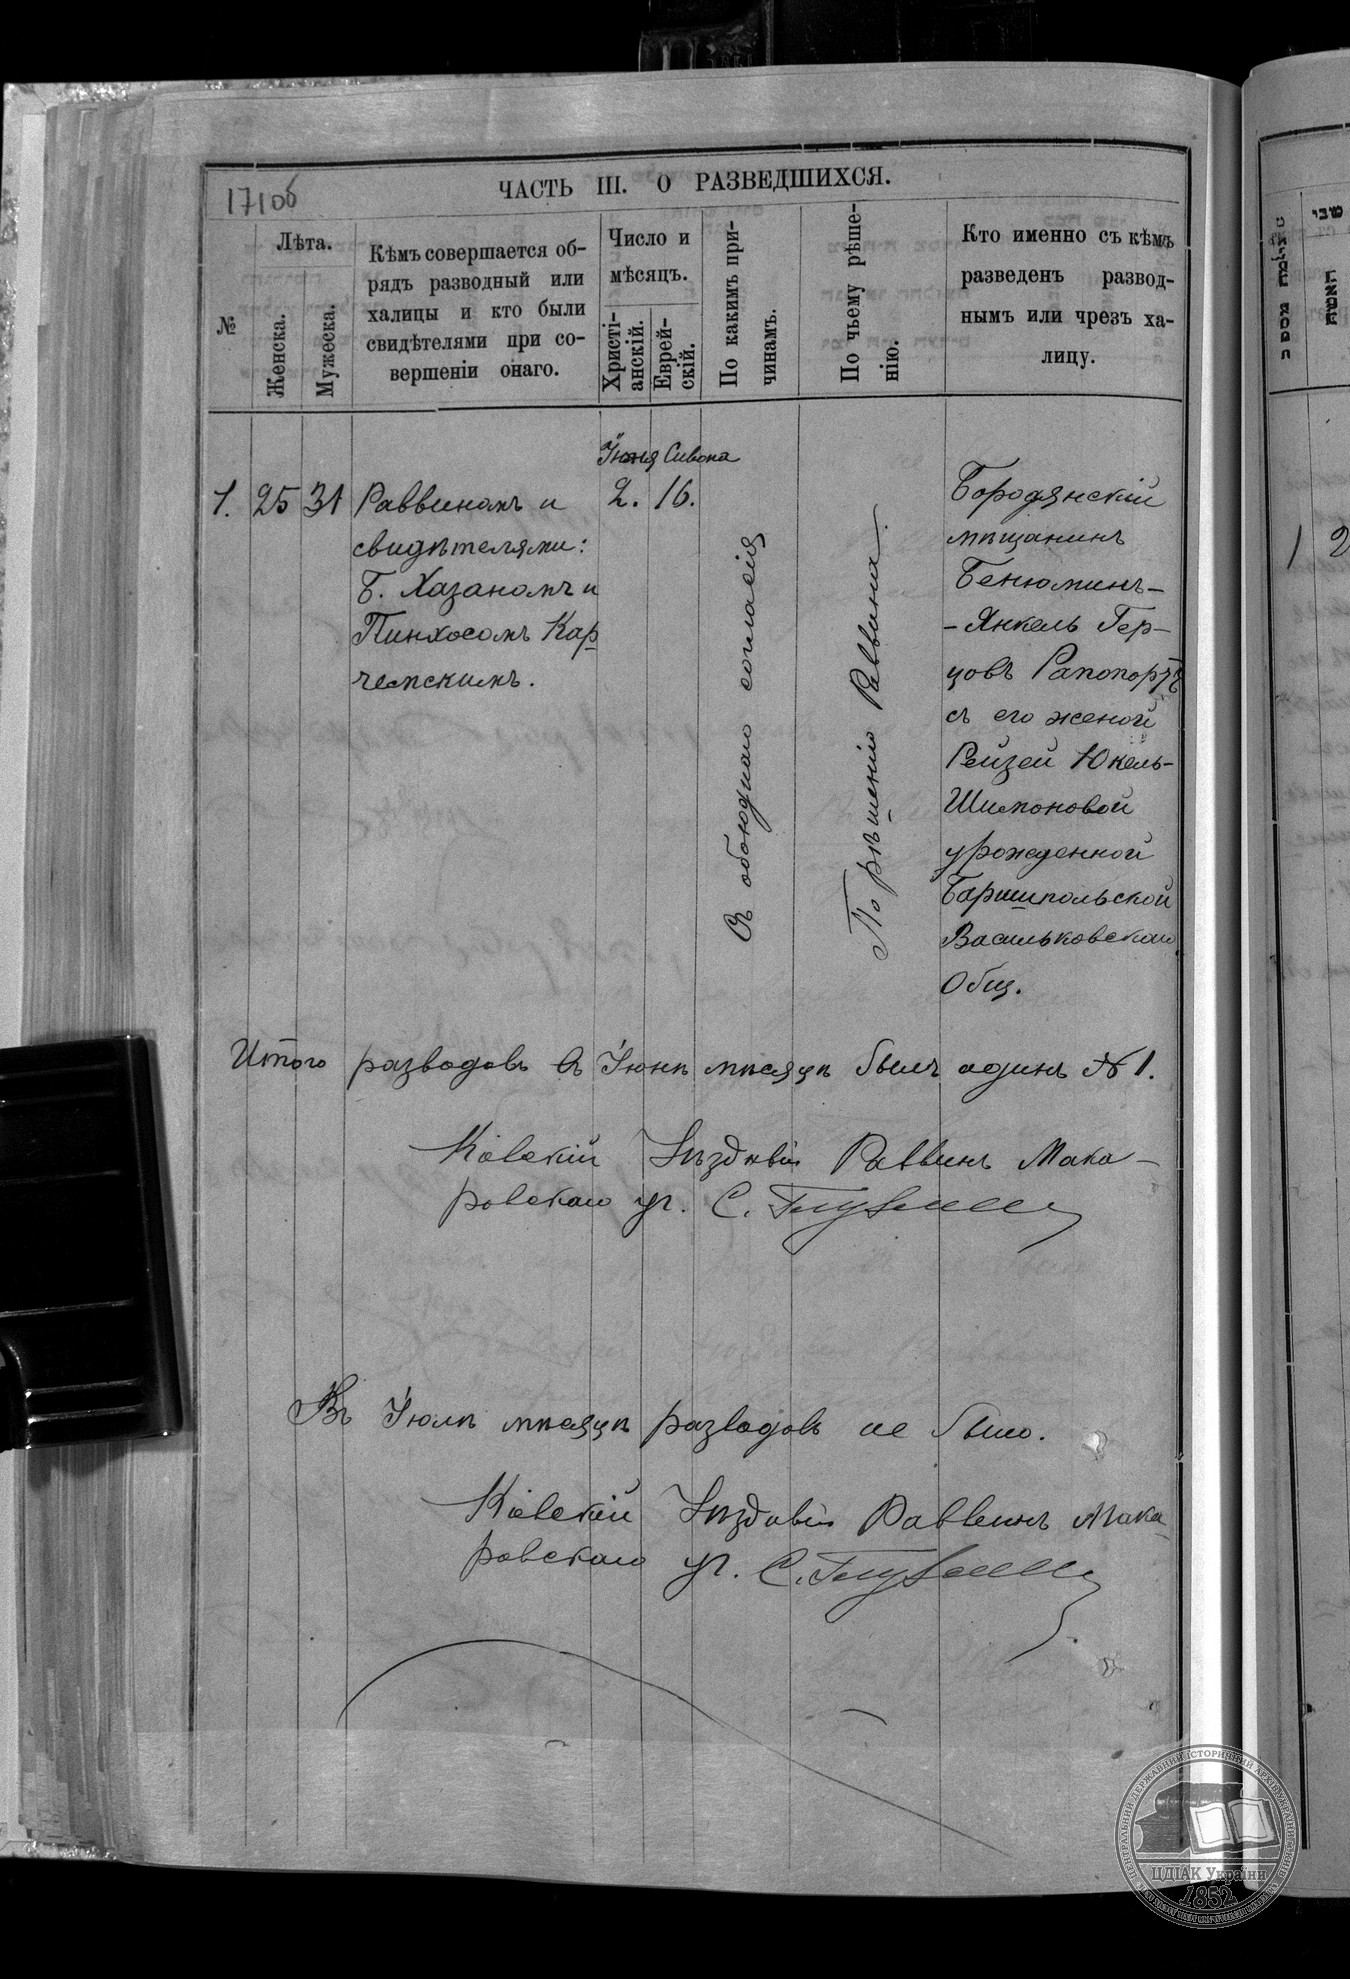 1710б
ЧАСТЬ III. О РАЗВЕДШИХСЯ.
№
Лѣта.
Женска.
Мужеска.
Кѣмъ совершается об-
рядъ разводный или
халицы и кто были
свидѣтелями при со-
вершеніи онаго.
Число и
мѣсяцъ.
Христі-
анскій.
Еврей-
скій.
По какимъ при-
чинамъ.
По чьему рѣше-
нію.
Кто именно съ кѣмъ
разведенъ развод-
нымъ или чрезъ ха-
лицу.
Іюня Сивона
1. 25 31
Раввиномъ и
свидѣтелями:
Б. Хазаномъ и
Пинхосомъ Кар
чемскимъ.
2. 16.
Съ обоюднаго согласія
По рѣшенію Раввина.
Бородянскій
мѣщанинъ
Бенюминъ-
-Янкель Гер-
цовъ Рапопортъ
съ его женой
Рейзей Юкель-
Шимоновой
урожденной
Барышпольской
Васильковскаго
Общ.
Итого разводовъ въ Іюнѣ мѣсяцѣ былъ одинъ № 1.
Кіевскій Уѣздный Раввинъ Мака-
ровскаго уч. С.
Въ Іюлѣ мѣсяцѣ разводовъ не было.
Кіевскій Уѣздный Раввинъ Мака-
ровскаго уч. С.
שבי
האשה
1 2
ЦЕНТРАЛЬНИЙ ДЕРЖАВНИЙ ІСТОРИЧНИЙ АРХІВ УКРАЇНИ
ЦДІАК України
1852